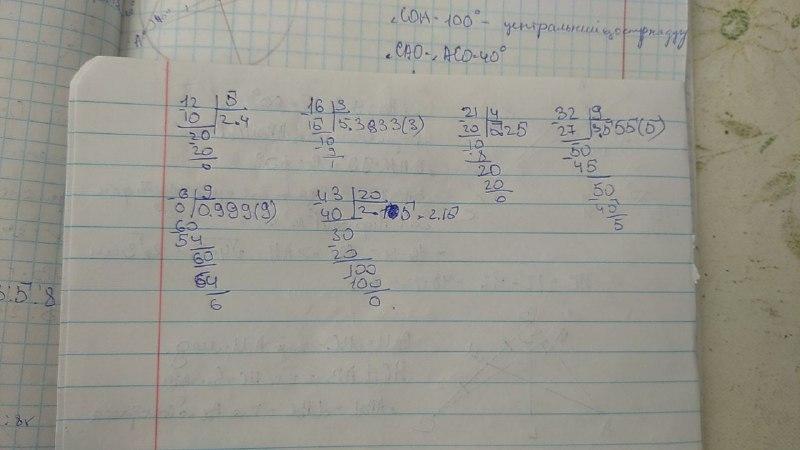 ∠COA = 100° - центральний
∠CAO = ∠ACO = 40°
12 | 5
10 | 2.4
20
20
0
16 | 3
15 | 5.3333(3)
10
9
1
21 | 4
20 | 5.25
10
8
20
20
0
32 | 9
27 | 3.555(5)
50
45
50
45
5
6 | 9
0 | 0.999(9)
60
54
60
54
6
43 | 20
40 | 2.15 = 2.15
30
20
100
100
0